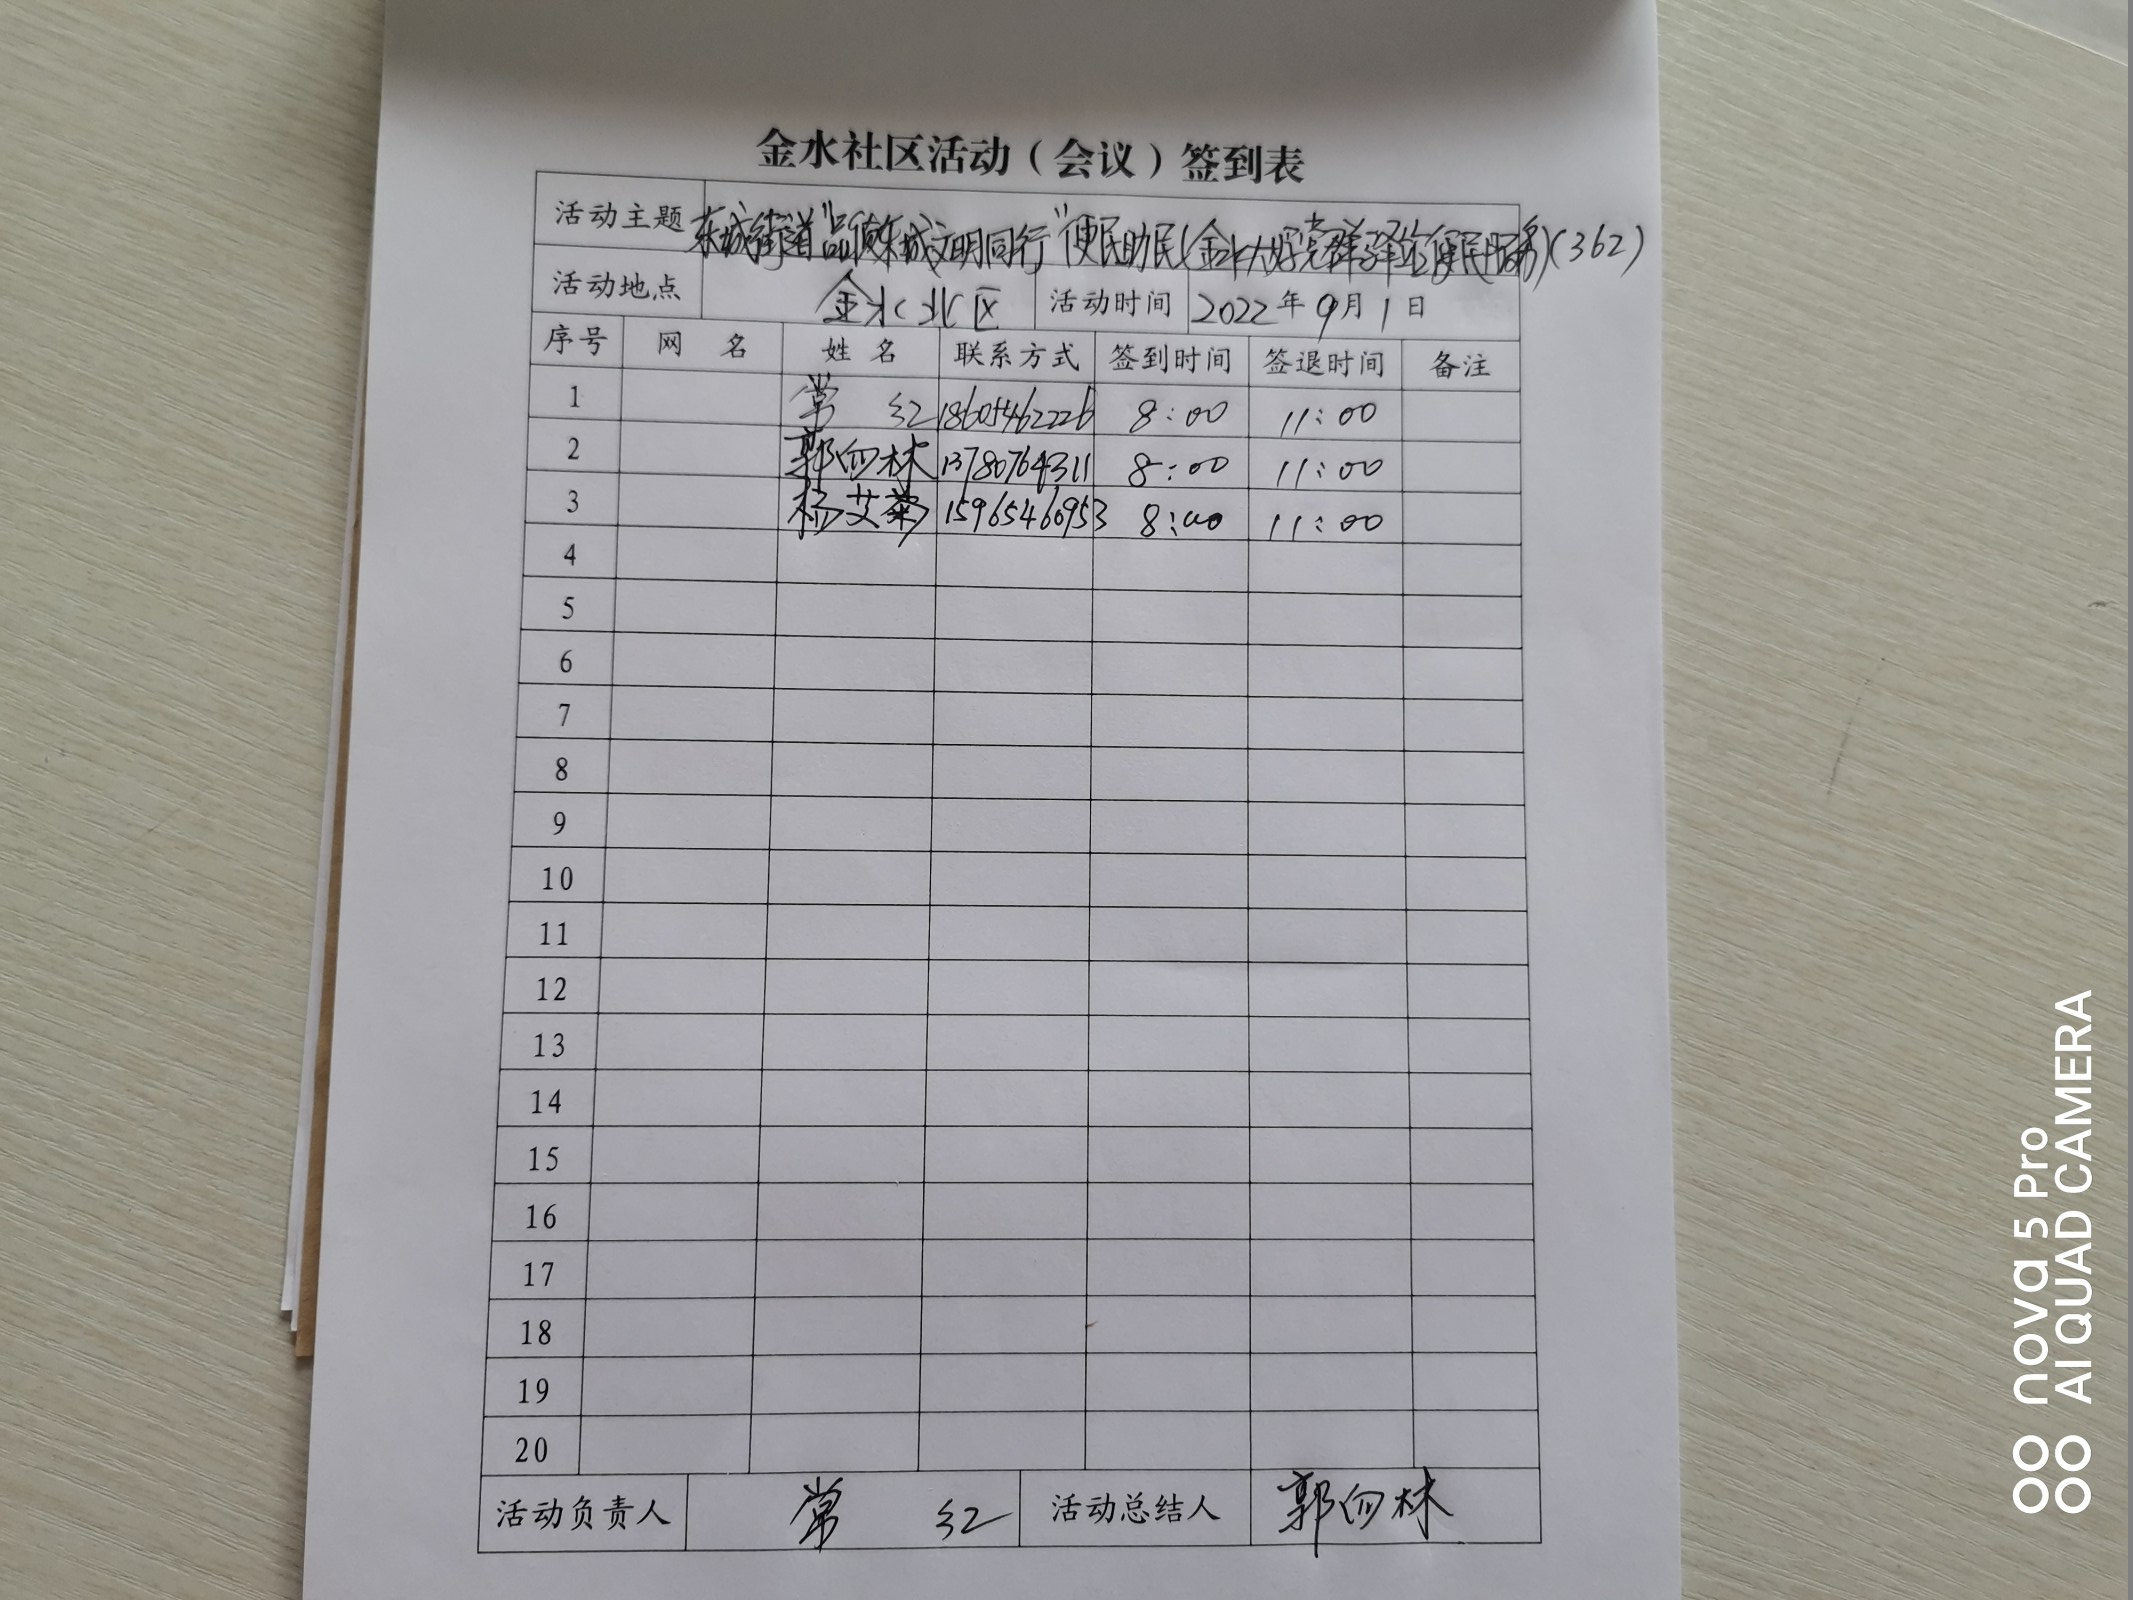 金水社区活动（会议）签到表
活动主题 东城街道"品质东城文明同行"便民助民(金水大妈党群驿站便民服务)(362)
活动地点 金水北区 活动时间 2022年9月1日
序号 网 名 姓 名 联系方式 签到时间 签退时间 备注
1 常 红 18605462226 8:00 11:00
2 郭向林 13780764311 8:00 11:00
3 杨艾菊 15965460953 8:00 11:00
4
5
6
7
8
9
10
11
12
13
14
15
16
17
18
19
20
活动负责人 常 红 活动总结人 郭向林
nova 5 Pro
AI QUAD CAMERA